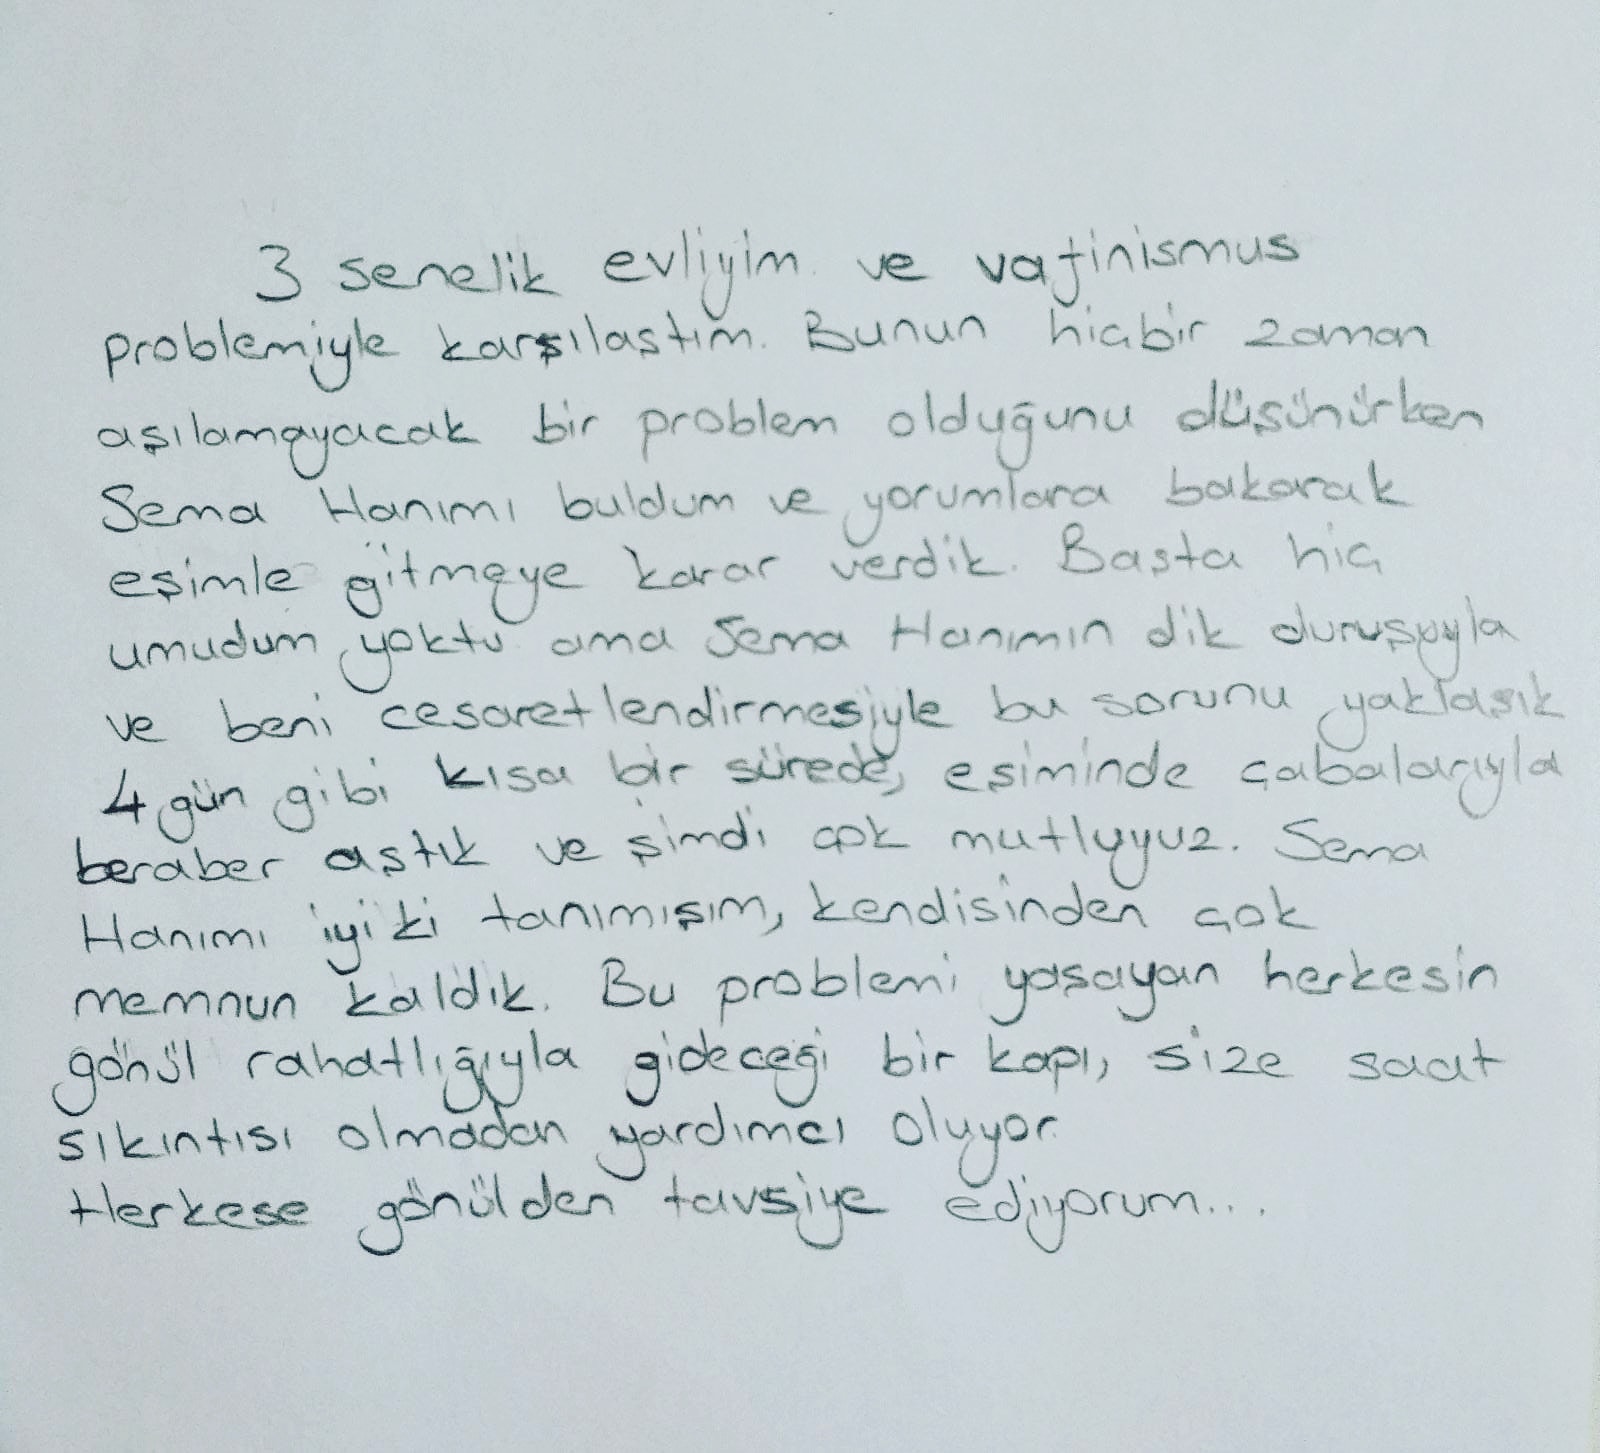 3 senelik evliyim ve vajinismus
problemiyle karşılaştım. Bunun hiçbir zaman
aşılamayacak bir problem olduğunu düşünürken
Sema Hanımı buldum ve yorumlara bakarak
eşimle gitmeye karar verdik. Başta hiç
umudum yoktu ama Sema Hanımın dik duruşuyla
ve beni cesaretlendirmesiyle bu sorunu yaklaşık
4 gün gibi kısa bir sürede, eşiminde çabalarıyla
beraber aştık ve şimdi çok mutluyuz. Sema
Hanımı iyi ki tanımışım, kendisinden çok
memnun kaldık. Bu problemi yaşayan herkesin
gönül rahatlığıyla gideceği bir kapı, size saat
sıkıntısı olmadan yardımcı oluyor.
Herkese gönülden tavsiye ediyorum...